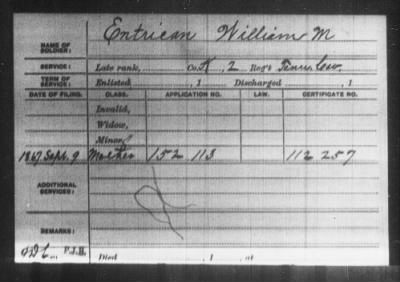 NAME OF SOLDIER: Entrican William M
SERVICE: Late rank, Co. K, 2 Reg't Tenn. Cav.
TERM OF SERVICE: Enlisted , 1 Discharged , 1
DATE OF FILING. CLASS. APPLICATION NO. LAW. CERTIFICATE NO.
Invalid,
Widow,
Minor,
1867 Sept. 9 Mother 152 113 112 257
ADDITIONAL SERVICES:
REMARKS:
P.J.H. Died , 1 , at